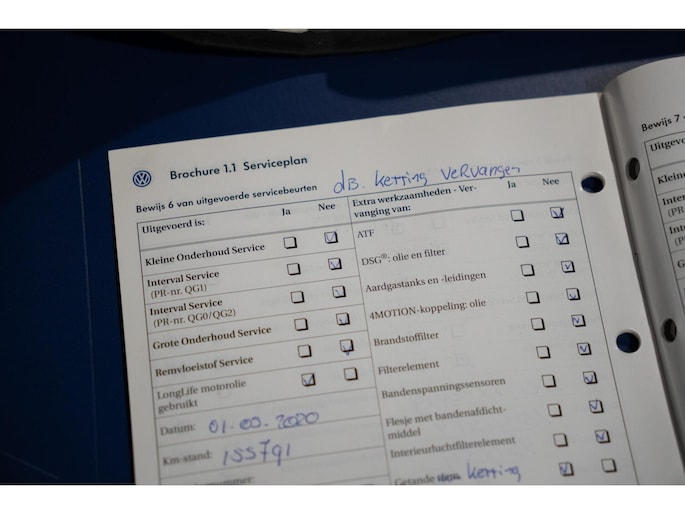 Brochure 1.1 Serviceplan
dB. ketting VeRvangen
Bewijs 6 van uitgevoerde servicebeurten
Uitgevoerd is:
Ja
Nee
Kleine Onderhoud Service
Interval Service
(PR-nr. QG1)
Interval Service
(PR-nr. QG0/QG2)
Grote Onderhoud Service
Remvloeistof Service
LongLife motorolie
gebruikt
Datum: 01.05.2020
Km-stand: 155791
Extra werkzaamheden - Ver-
vanging van:
Ja
Nee
ATF
DSG®: olie en filter
Aardgastanks en -leidingen
4MOTION-koppeling: olie
Brandstoffilter
Filterelement
Bandenspanningssensoren
Flesje met bandenafdicht-
middel
Interieurluchtfilterelement
Getande ketting
Bewijs 7
Uitgevo
Kleine
Interv
(PR-n
Interv
(PR-n